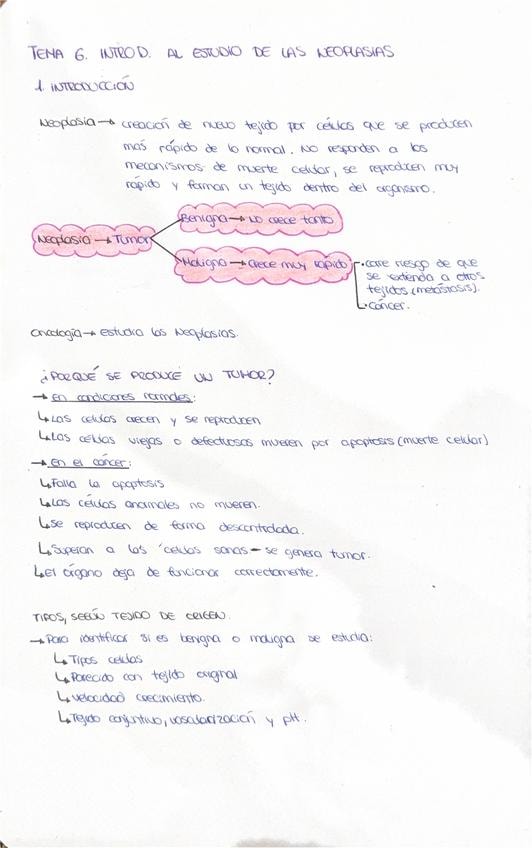 TEMA 6. INTROD. AL ESTUDIO DE LAS NEOPLASIAS
1. INTRODUCCIÓN
Neoplasia → creación de nuevo tejido por células que se producen
más rápido de lo normal. No responden a los
mecanismos de muerte celular, se reproducen muy
rápido y forman un tejido dentro del organismo.
Neoplasia → Tumor
Benigna → No crece tanto
Maligna → Crece muy rápido
· corre riesgo de que
se extienda a otros
tejidos (metástasis).
· Cáncer.
Oncología → estudia las Neoplasias.
¿PORQUÉ SE PRODUCE UN TUMOR?
→ En condiciones normales:
↳ Las células crecen y se reproducen
↳ Las células viejas o defectuosas mueren por apoptosis (muerte celular)
→ En el cáncer:
↳ Falla la apoptosis
↳ Las células anormales no mueren.
↳ Se reproducen de forma descontrolada.
↳ Superan a las células sanas — se genera tumor.
↳ El órgano deja de funcionar correctamente.
TIPOS, SEGÚN TEJIDO DE ORIGEN.
→ Para identificar si es benigna o maligna se estudia:
↳ Tipos células
↳ Parecido con tejido original
↳ Velocidad crecimiento.
↳ Tejido conjuntivo, vascularización y pH.